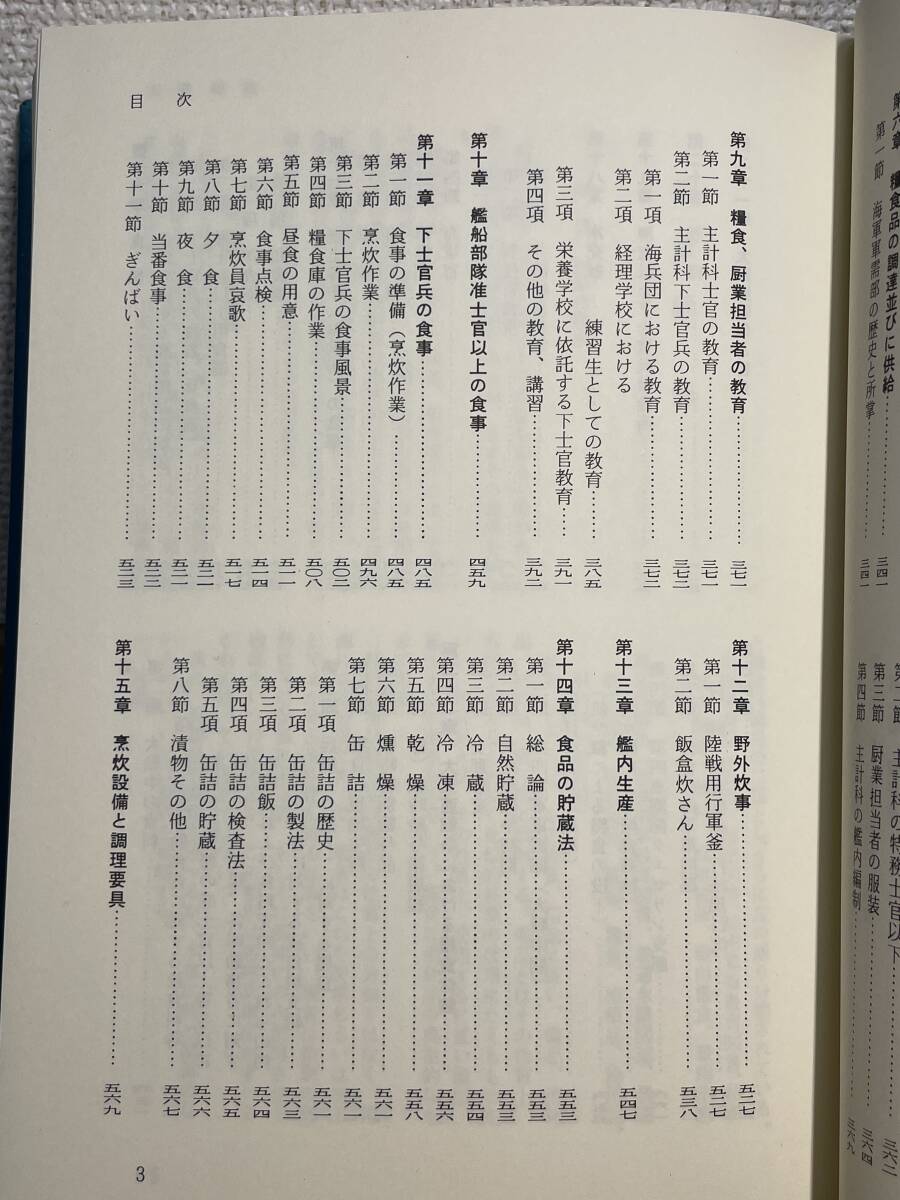 第六章　糧食品の調達並びに供給……………三四一
第一節　海軍軍需部の歴史と所掌……………三四一
第二節　主計科の特務士官以下……………三六二
第三節　厨業担当者の服装……………三六四
第四節　主計科の艦内編制……………三六九
目　次
第九章　糧食、厨業担当者の教育……………三七一
第一節　主計科士官の教育……………三七一
第二節　主計科下士官兵の教育……………三七二
第一項　海兵団における教育……………三七二
第二項　経理学校における
練習生としての教育……………三八五
第三項　栄養学校に依託する下士官教育……………三九一
第四項　その他の教育、講習……………三九二
第十章　艦船部隊准士官以上の食事……………四五九
第十一章　下士官兵の食事……………四八五
第一節　食事の準備（烹炊作業）……………四八五
第二節　烹炊作業……………四九六
第三節　下士官兵の食事風景……………五〇二
第四節　糧食庫の作業……………五〇八
第五節　昼食の用意……………五一一
第六節　食事点検……………五一四
第七節　烹炊員哀歌……………五一七
第八節　夕　食……………五二一
第九節　夜　食……………五二一
第十節　当番食事……………五二二
第十一節　ぎんばい……………五二三
第十二章　野外炊事……………五二七
第一節　陸戦用行軍釜……………五二七
第二節　飯盒炊さん……………五三八
第十三章　艦内生産……………五四七
第十四章　食品の貯蔵法……………五五三
第一節　総　論……………五五三
第二節　自然貯蔵……………五五三
第三節　冷　蔵……………五五四
第四節　冷　凍……………五五六
第五節　乾　燥……………五五八
第六節　燻　燥……………五六一
第七節　缶　詰……………五六一
第一項　缶詰の歴史……………五六一
第二項　缶詰の製法……………五六三
第三項　缶詰飯……………五六四
第四項　缶詰の検査法……………五六五
第五項　缶詰の貯蔵……………五六六
第八節　漬物その他……………五六七
第十五章　烹炊設備と調理要具……………五六九
3